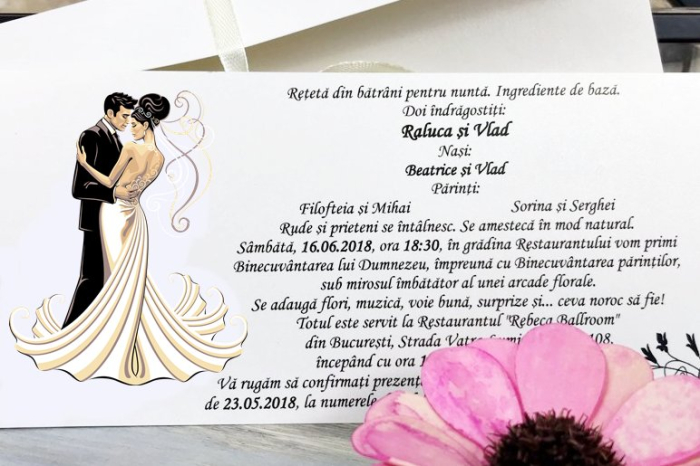 Rețetă din bătrâni pentru nuntă. Ingrediente de bază.
Doi îndrăgostiți:
Raluca și Vlad
Nași:
Beatrice și Vlad
Părinți:
Filofteia și Mihai Sorina și Serghei
Rude și prieteni se întâlnesc. Se amestecă în mod natural.
Sâmbătă, 16.06.2018, ora 18:30, în grădina Restaurantului vom primi
Binecuvântarea lui Dumnezeu, împreună cu Binecuvântarea părinților,
sub mirosul îmbătător al unei arcade florale.
Se adaugă flori, muzică, voie bună, surprize și... ceva noroc să fie!
Totul este servit la Restaurantul "Rebeca Ballroom"
din București, Strada Vatra 108.
începând cu ora
Vă rugăm să confirmați
de 23.05.2018, la numerele